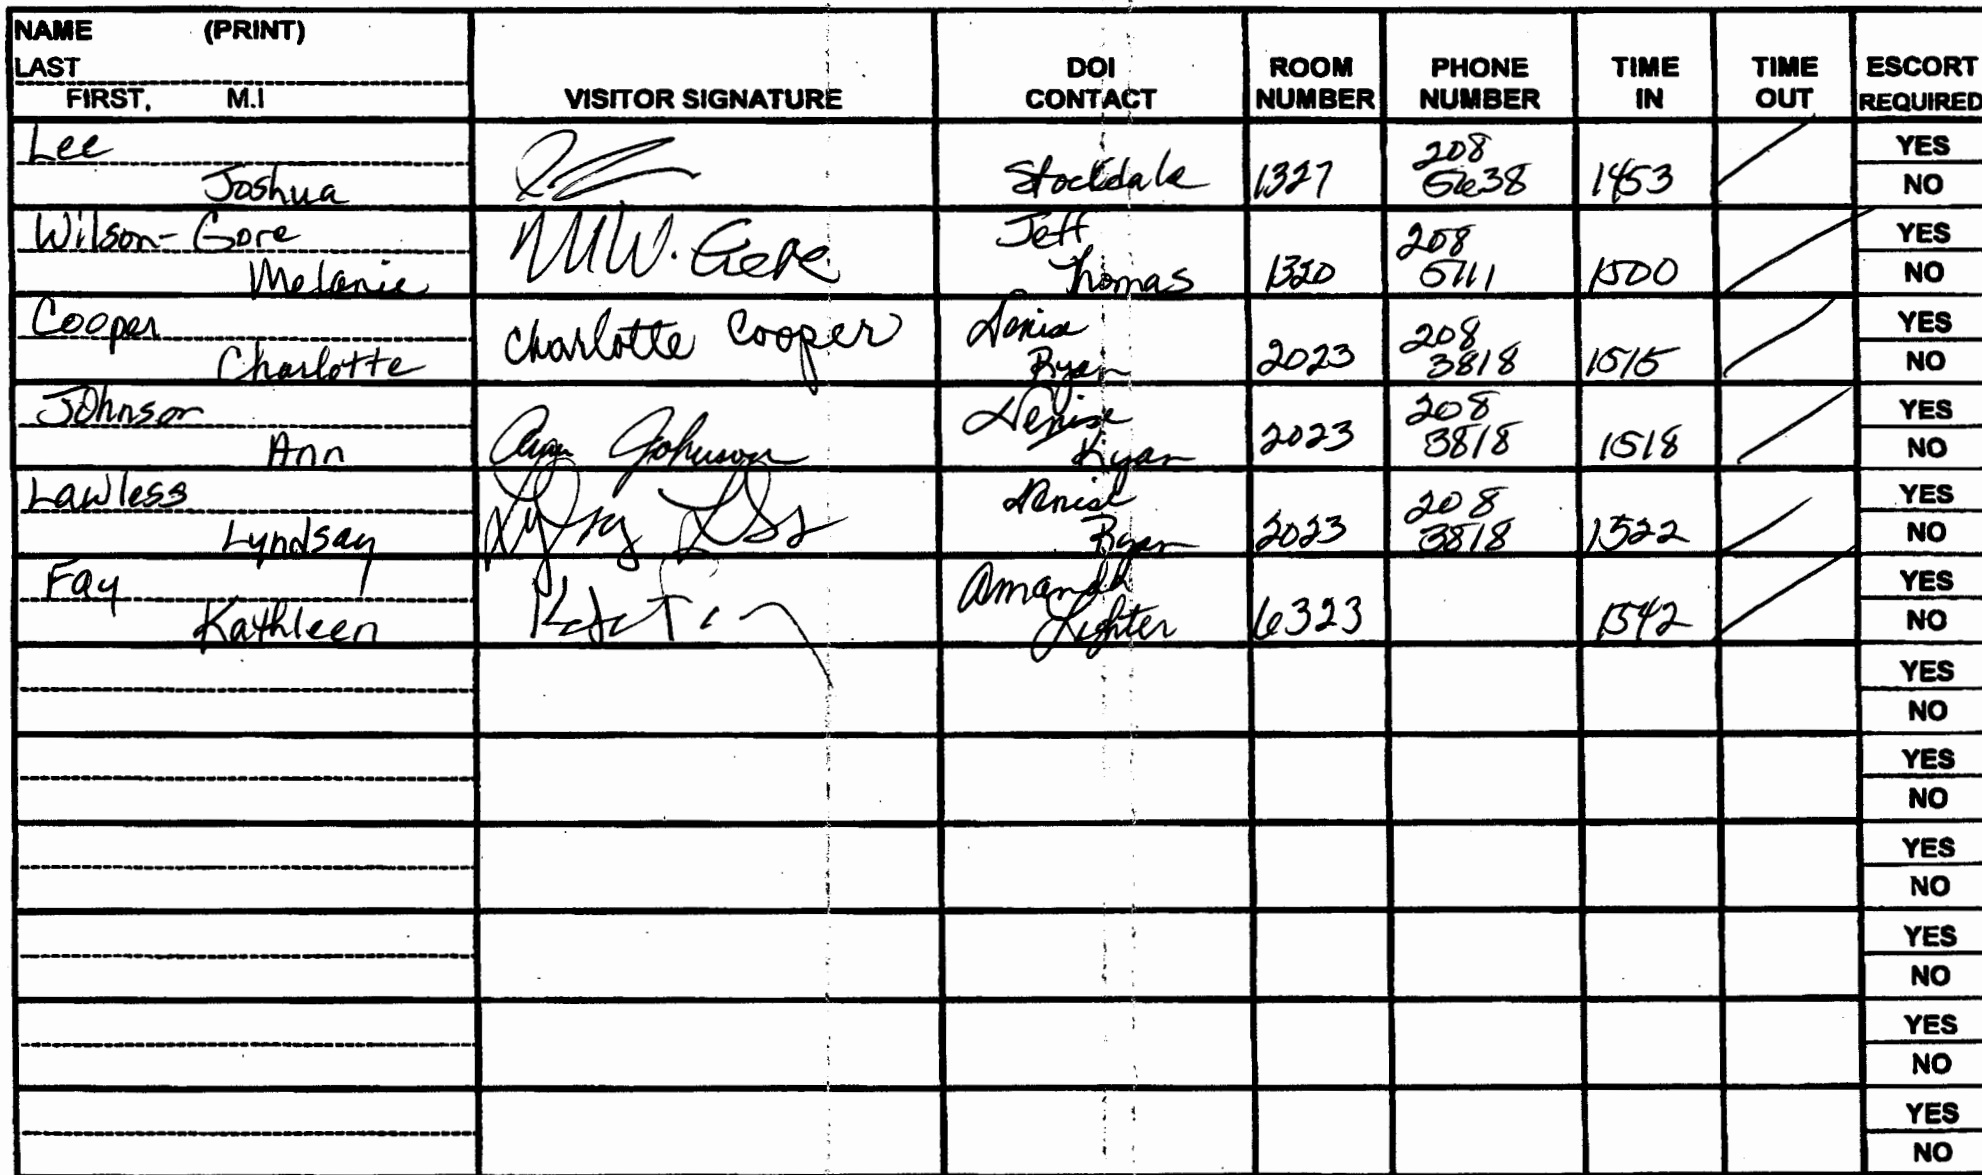 NAME (PRINT)
LAST
FIRST, M.I
VISITOR SIGNATURE
DOI
CONTACT
ROOM
NUMBER
PHONE
NUMBER
TIME
IN
TIME
OUT
ESCORT
REQUIRED
Lee
Joshua
Stockdale
1327
208
5638
1453
YES
NO
Wilson-Gore
Melanie
MW. Gore
Jeff
Thomas
1320
208
5111
1500
YES
NO
Cooper
Charlotte
Charlotte Cooper
Denise
Ryan
2023
208
3818
1515
YES
NO
Johnson
Ann
Ann Johnson
Denise
Ryan
2023
208
3818
1518
YES
NO
Lawless
Lyndsay
Denise
Ryan
2023
208
3818
1522
YES
NO
Fay
Kathleen
Amanda
6323
1542
YES
NO
YES
NO
YES
NO
YES
NO
YES
NO
YES
NO
YES
NO